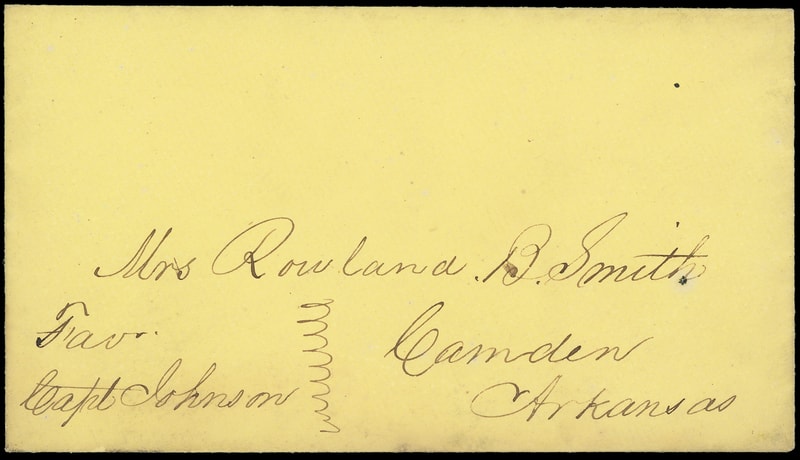 Mrs Rowland B. Smith
Camden
Arkansas
Favr.
Capt Johnson